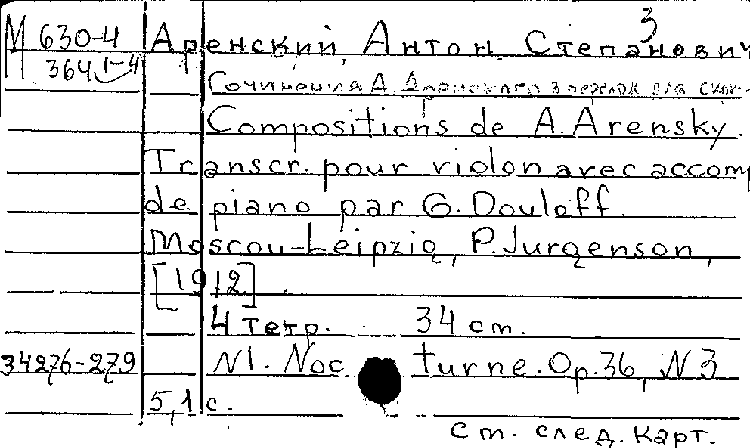 3
М 630-4 Аренский, Антон Степанович
364 1-4 Сочинения А. Аренского в перелож. для скр.
Compositions de A. Arensky.
Transcr. pour violon avec accomp
de piano par G. Douloff.
Moscou-Leipzig, P. Jurgenson,
[1912].
4 тетр. 34 cm.
34276-279 N1. Nocturne. Op. 36, N3
5,1 с.
см. след. карт.